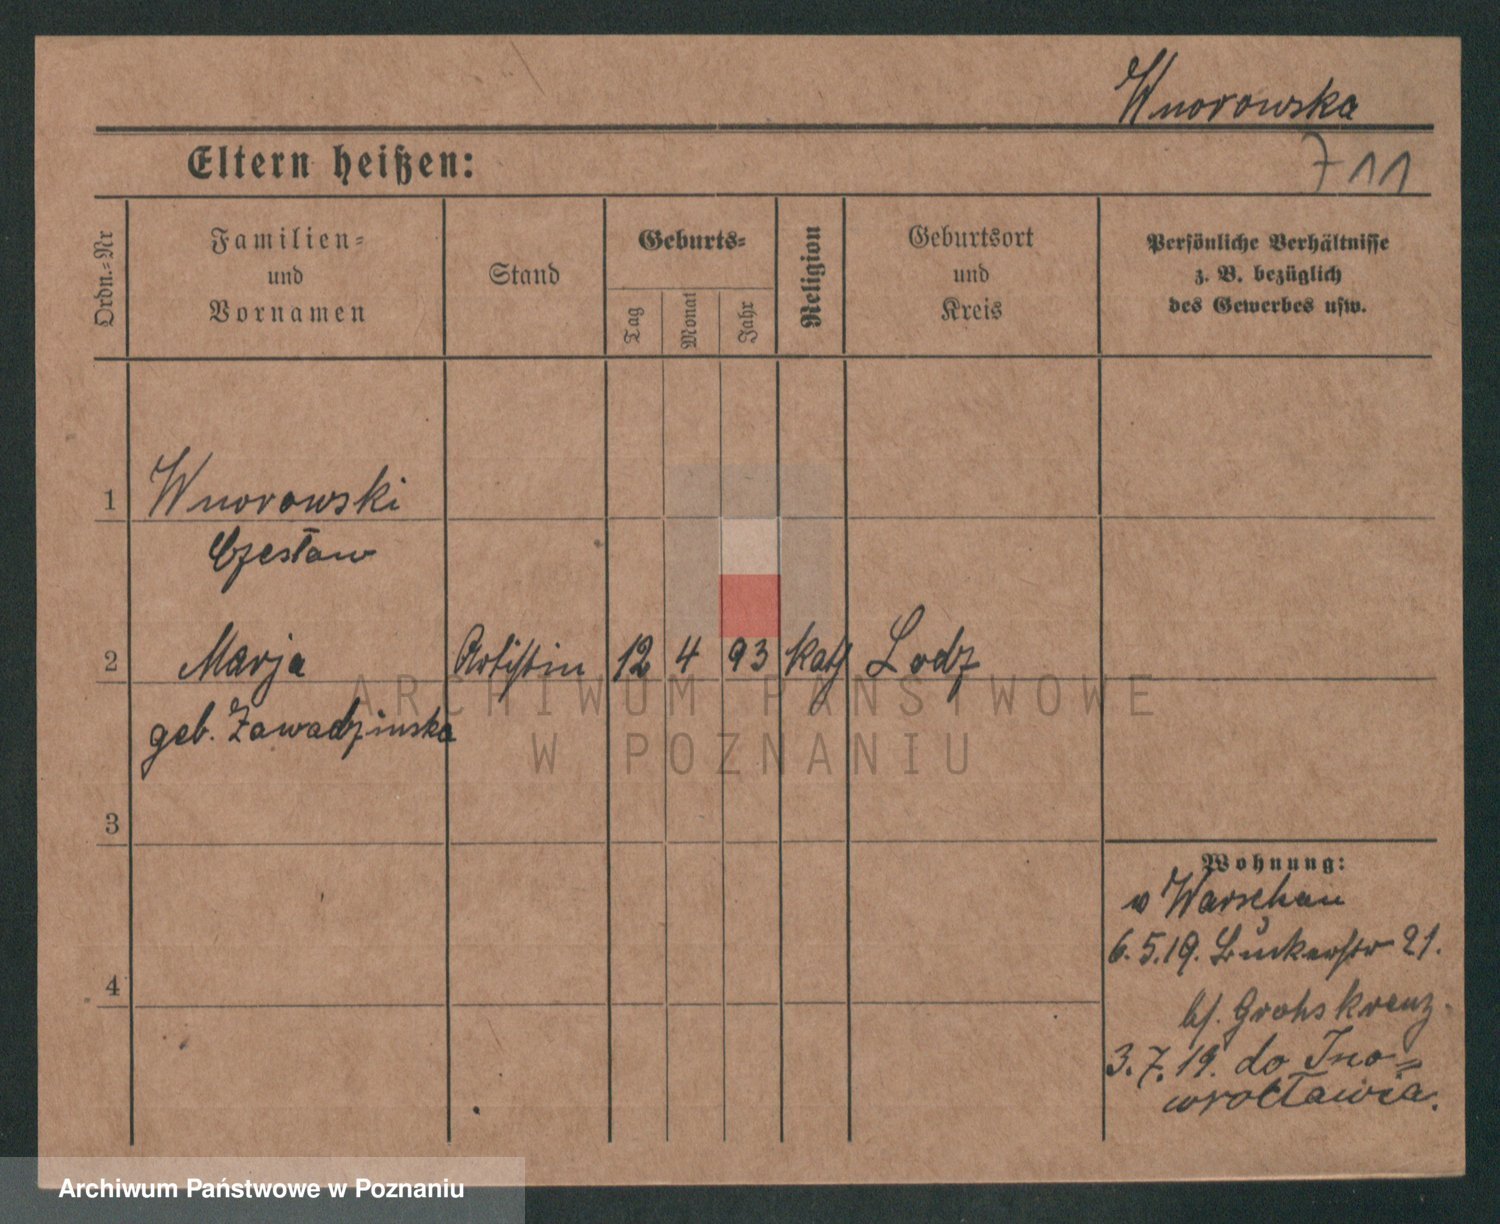 Wnorowska
Eltern heißen:
711
Ordn.-Nr
Familien-
und
Vornamen
Stand
Geburts-
Tag
Monat
Jahr
Religion
Geburtsort
und
Kreis
Persönliche Verhältnisse
z. B. bezüglich
des Gewerbes usw.
1 Wnorowski
Czesław
2 Marja Artistin 12 4 93 kath Lodz
geb. Zawadzinska
ARCHIWUM PAŃSTWOWE
W POZNANIU
3
Wohnung:
v Warschau
6.5.19. 21.
4
b/. Grohskreuz.
3.7.19. do Ino=
wrocławia.
Archiwum Państwowe w Poznaniu